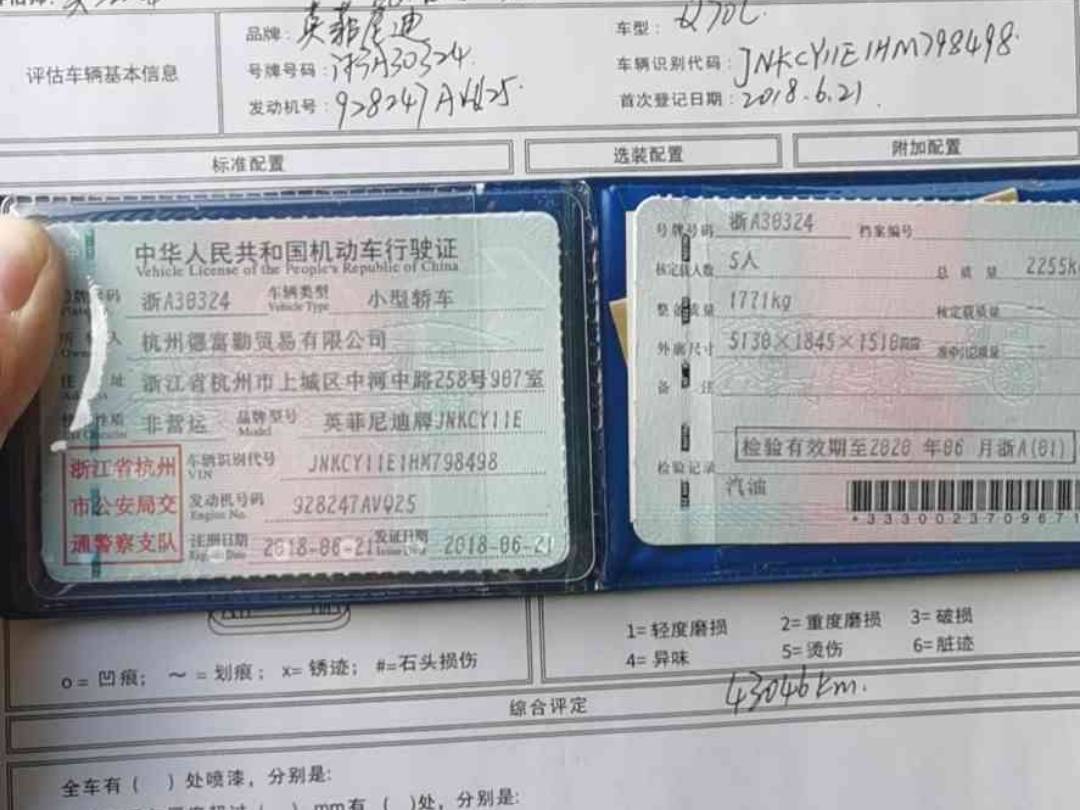 品牌：英菲尼迪 车型：Q70L
评估车辆基本信息 号牌号码：浙A30324 车辆识别代码：JNKCY11E1HM798498
发动机号：928247A 首次登记日期：2018.6.21
标准配置 选装配置 附加配置
中华人民共和国机动车行驶证
Vehicle License of the People's Republic of China
浙A30324 车辆类型 Vehicle Type 小型轿车
杭州德富勤贸易有限公司
住 址 浙江省杭州市上城区中河中路258号907室
非营运 品牌型号 Model 英菲尼迪牌JNKCY11E
浙江省杭州
市公安局交
通警察支队
车辆识别代号 VIN JNKCY11E1HM798498
发动机号码 Engine No. 928247AVQ25
注册日期 2018-06-21 发证日期 2018-06-21
号牌号码 浙A30324 档案编号
核定载人数 5人 总质量 2255k
整备质量 1771kg 核定载质量 --
外廓尺寸 5130×1845×1510mm --
备 注
检验有效期至2020 年06 月浙A(01)
检验记录
汽油
*333002370967
o = 凹痕； ～ = 划痕； x= 锈迹； #=石头损伤
1= 轻度磨损 2= 重度磨损 3= 破损
4= 异味 5= 烫伤 6= 脏迹
综合评定 43046km.
全车有（ ）处喷漆，分别是:
mm有（ ）处，分别是: